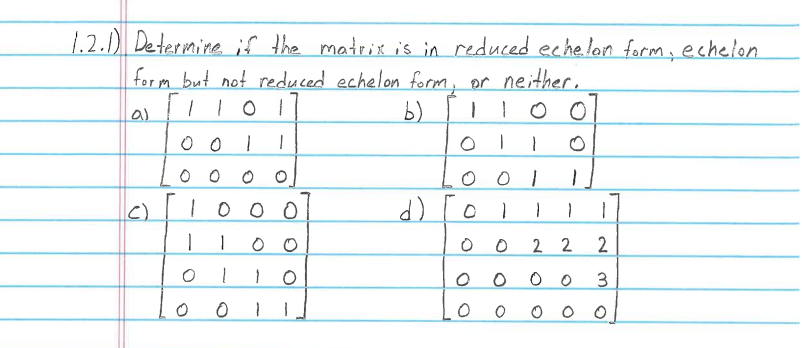 1.2.1) Determine if the matrix is in reduced echelon form, echelon
form but not reduced echelon form, or neither.
a) [1 1 0 1] b) [1 1 0 0]
[0 0 1 1] [0 1 1 0]
[0 0 0 0] [0 0 1 1]
c) [1 0 0 0] d) [0 1 1 1 1]
[1 1 0 0] [0 0 2 2 2]
[0 1 1 0] [0 0 0 0 3]
[0 0 1 1] [0 0 0 0 0]